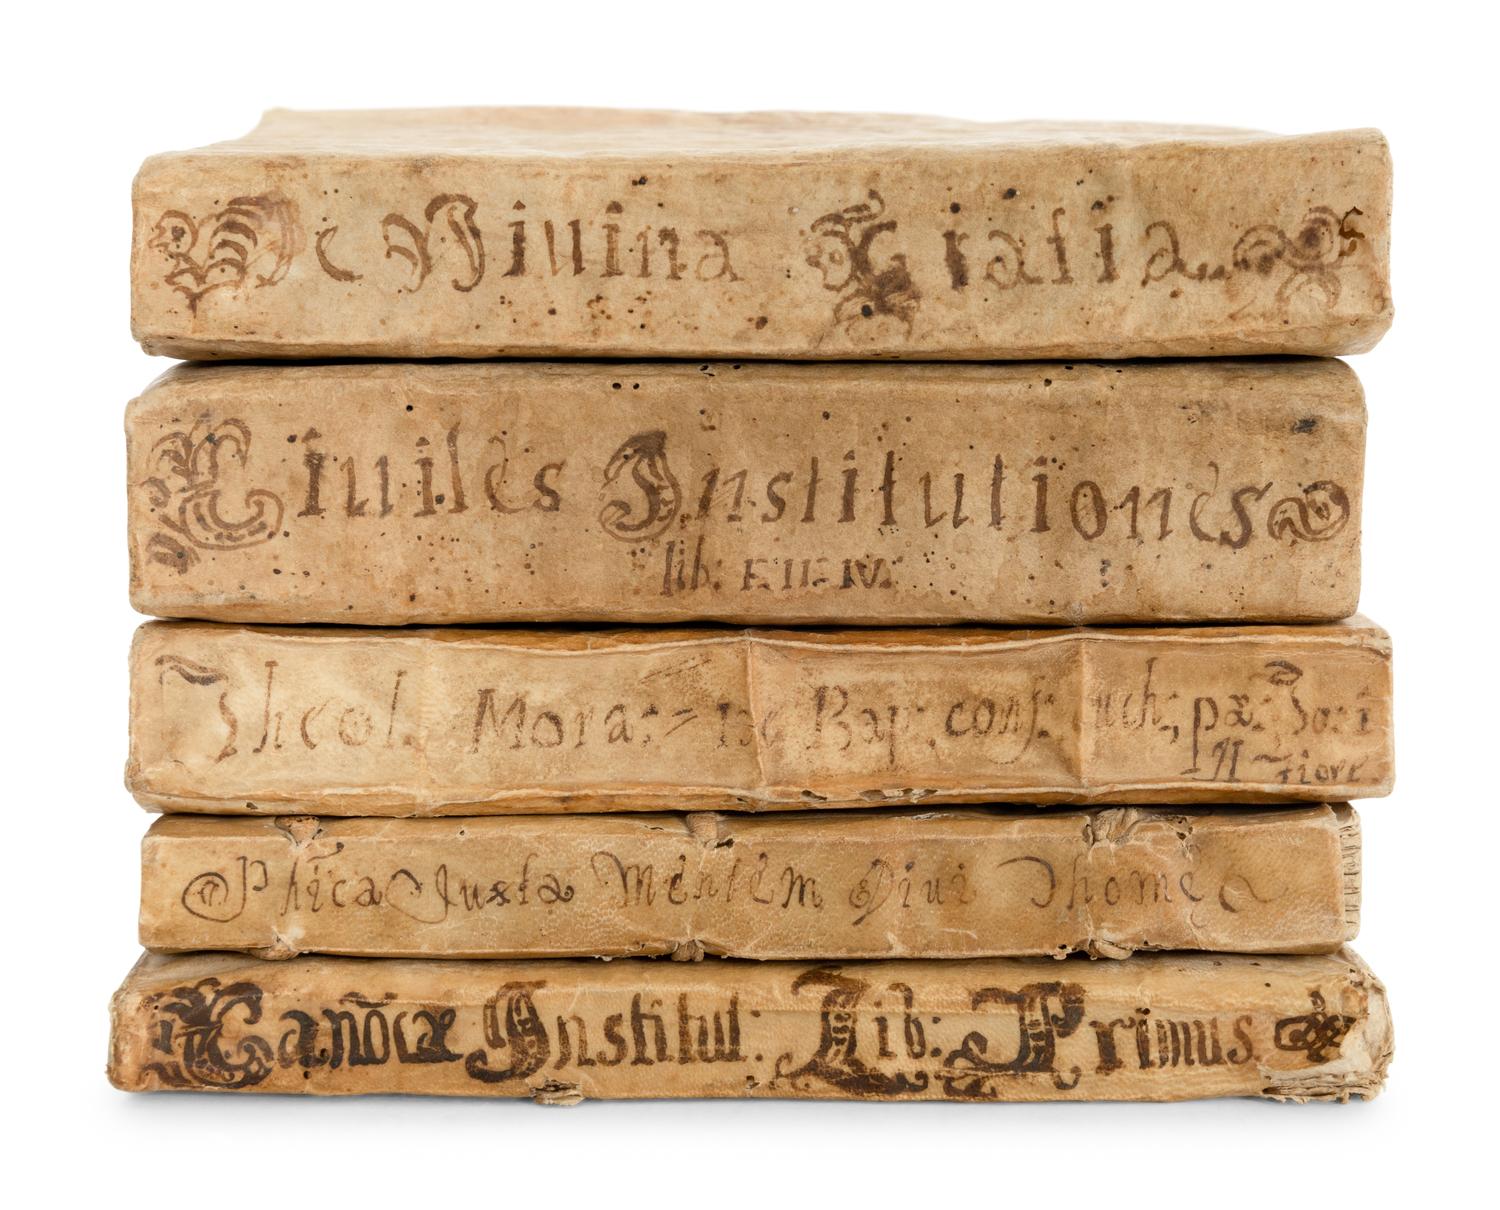 De Diuina Gratia
Ciuiles Institutiones
lib: II. IV.
Theol. Mora: Bap: conf: pæ:
Phīca Iuxta Mentem Diui Thome
Canōicæ Institut: Lib: Primus